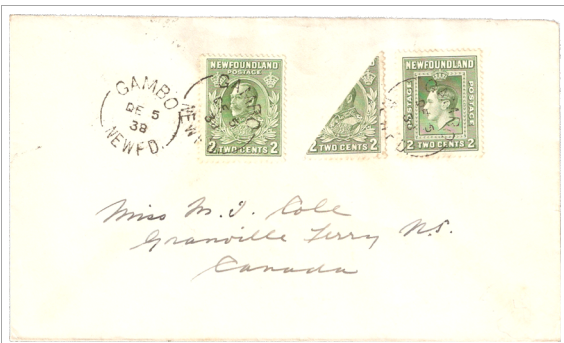 GAMBO
DE 5
38
NEWF'D.
NEWFOUNDLAND
POSTAGE
2 TWO CENTS 2
GAMBO
DE 5
38
NEWF'D.
2 TWO CENTS 2
NEWFOUNDLAND
POSTAGE
POSTAGE
2 TWO CENTS 2
Miss M. J. Cole
Granville Ferry N.S.
Canada